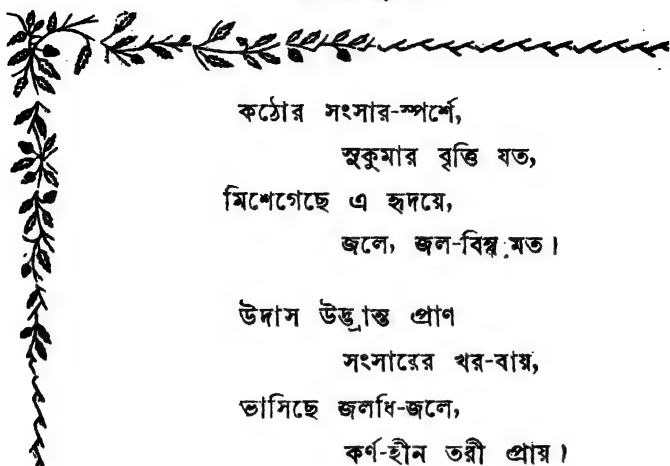 কঠোর সংসার-স্পর্শে,
সুকুমার বৃত্তি যত,
মিশেগেছে এ হৃদয়ে,
জলে, জল-বিম্ব মত।
উদাস উদ্ভ্রান্ত প্রাণ
সংসারের খর-বায়,
ভাসিছে জলধি-জলে,
কর্ণ-হীন তরী প্রায়।